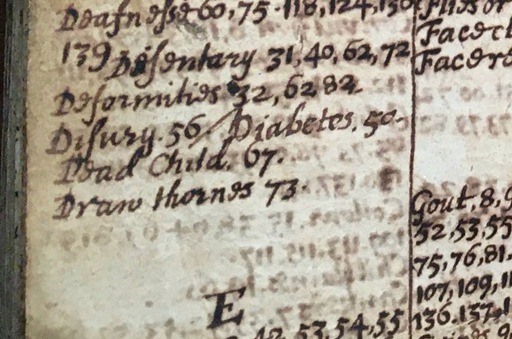 Deafnesse 60, 75. 118, 124, 130
139 Disentary 31, 40, 62, 72
Deformities 32, 62 82.
Disury 56. Diabetes. 50.
Dead Child. 67.
Draw thornes 73.
E
42, 53, 54, 55
Flies or
Gout, 8, 9
52, 53, 55
75, 76, 81.
107, 109, 11
136. 137, 1